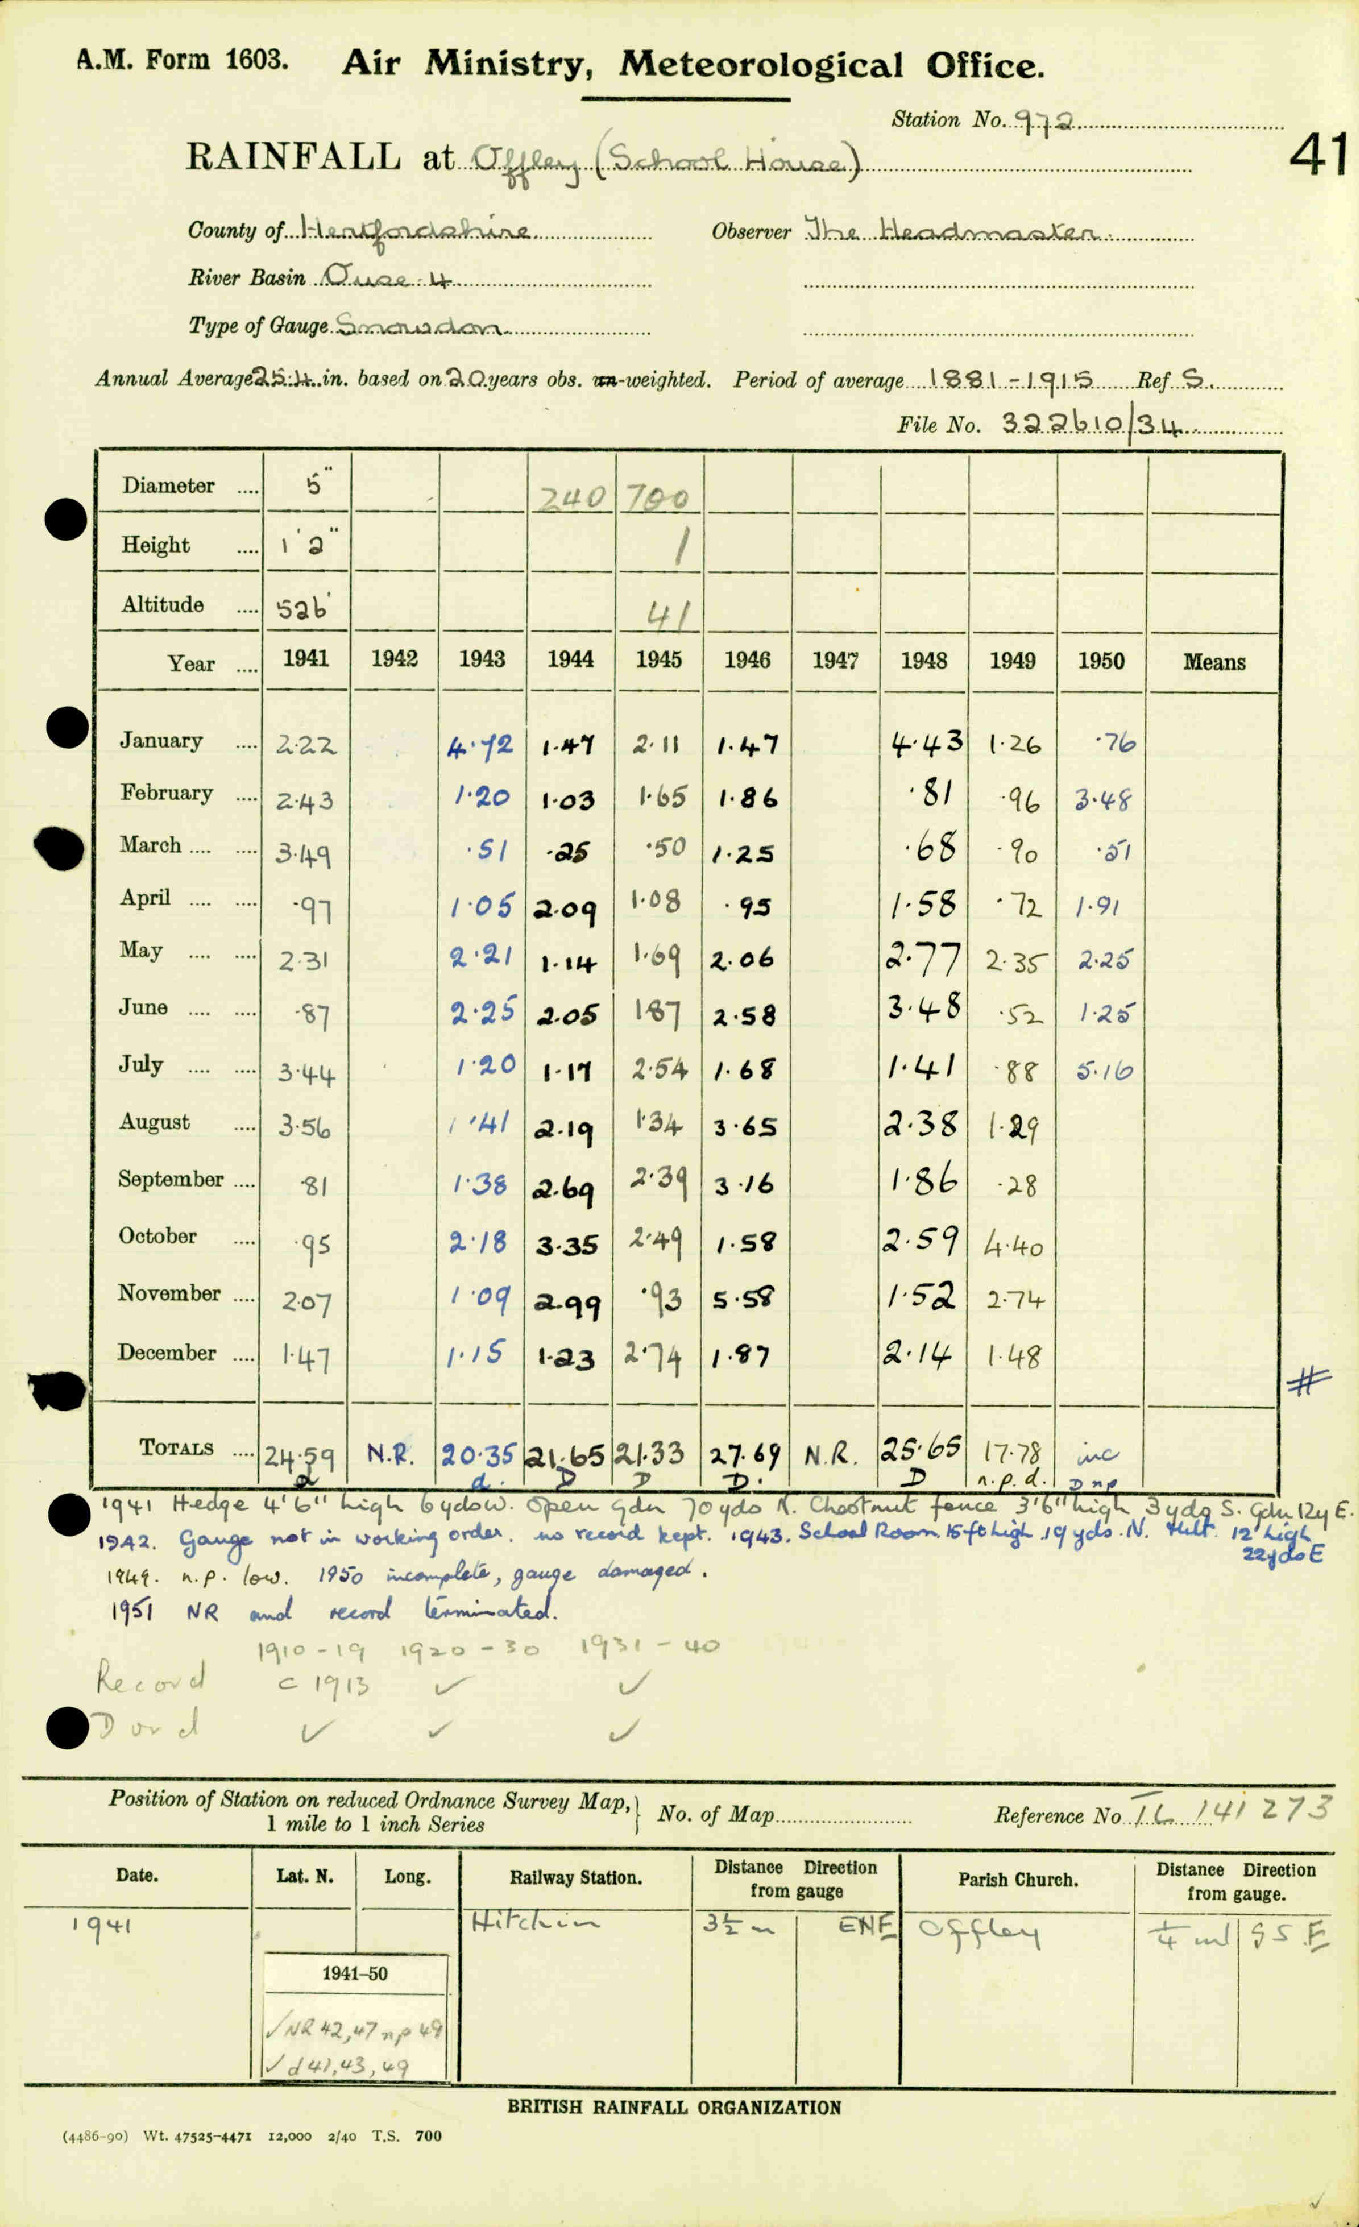 A.M. Form 1603. Air Ministry, Meteorological Office.
Station No. 972
41
RAINFALL at Offley (School House)
County of Hertfordshire Observer The Headmaster
River Basin Ouse 4
Type of Gauge Snowdon
Annual Average 25.4 in. based on 20 years obs. un-weighted. Period of average 1881-1915 Ref S.
File No. 322610/34
Diameter .... 5" 240 700
Height .... 1'2" 1
Altitude .... 526' 41
Year .... 1941 1942 1943 1944 1945 1946 1947 1948 1949 1950 Means
January .... 2.22 4.72 1.47 2.11 1.47 4.43 1.26 .76
February .... 2.43 1.20 1.03 1.65 1.86 .81 .96 3.48
March .... .... 3.49 .51 .25 .50 1.25 .68 .90 .51
April .... .... .97 1.05 2.09 1.08 .95 1.58 .72 1.91
May .... .... 2.31 2.21 1.14 1.69 2.06 2.77 2.35 2.25
June .... .... .87 2.25 2.05 1.87 2.58 3.48 .52 1.25
July .... .... 3.44 1.20 1.17 2.54 1.68 1.41 .88 5.16
August .... 3.56 1.41 2.19 1.34 3.65 2.38 1.29
September .... .81 1.38 2.69 2.39 3.16 1.86 .28
October .... .95 2.18 3.35 2.49 1.58 2.59 4.40
November .... 2.07 1.09 2.99 .93 5.58 1.52 2.74
December .... 1.47 1.15 1.23 2.74 1.87 2.14 1.48
#
TOTALS .... 24.59 N.R. 20.35 21.65 21.33 27.69 N.R. 25.65 17.78 inc
d d. D D D. D n.p.d. D np
1941 Hedge 4'6" high 6 yds W. Open gdn 70 yds N. Chestnut fence 3'6" high 3 yds S. Gdn 12y E.
1942. Gauge not in working order. no record kept. 1943. School Room 15 ft high 19 yds. N. 12' high
22 yds E
1949. n.p. low. 1950 incomplete, gauge damaged.
1951 NR and record terminated.
1910-19 1920-30 1931-40
Record c 1913 ✓ ✓
D or d ✓ ✓ ✓
Position of Station on reduced Ordnance Survey Map,} No. of Map Reference No. TL 141 273
1 mile to 1 inch Series
Date. Lat. N. Long. Railway Station. Distance Direction from gauge Parish Church. Distance Direction from gauge.
1941 Hitchin 3½ m ENE Offley ¼ ml SSE
1941-50
✓ NR 42,47 np 49
✓ d 41,43,49
BRITISH RAINFALL ORGANIZATION
(4486-90) Wt. 47525-4471 12,000 2/40 T.S. 700
✓